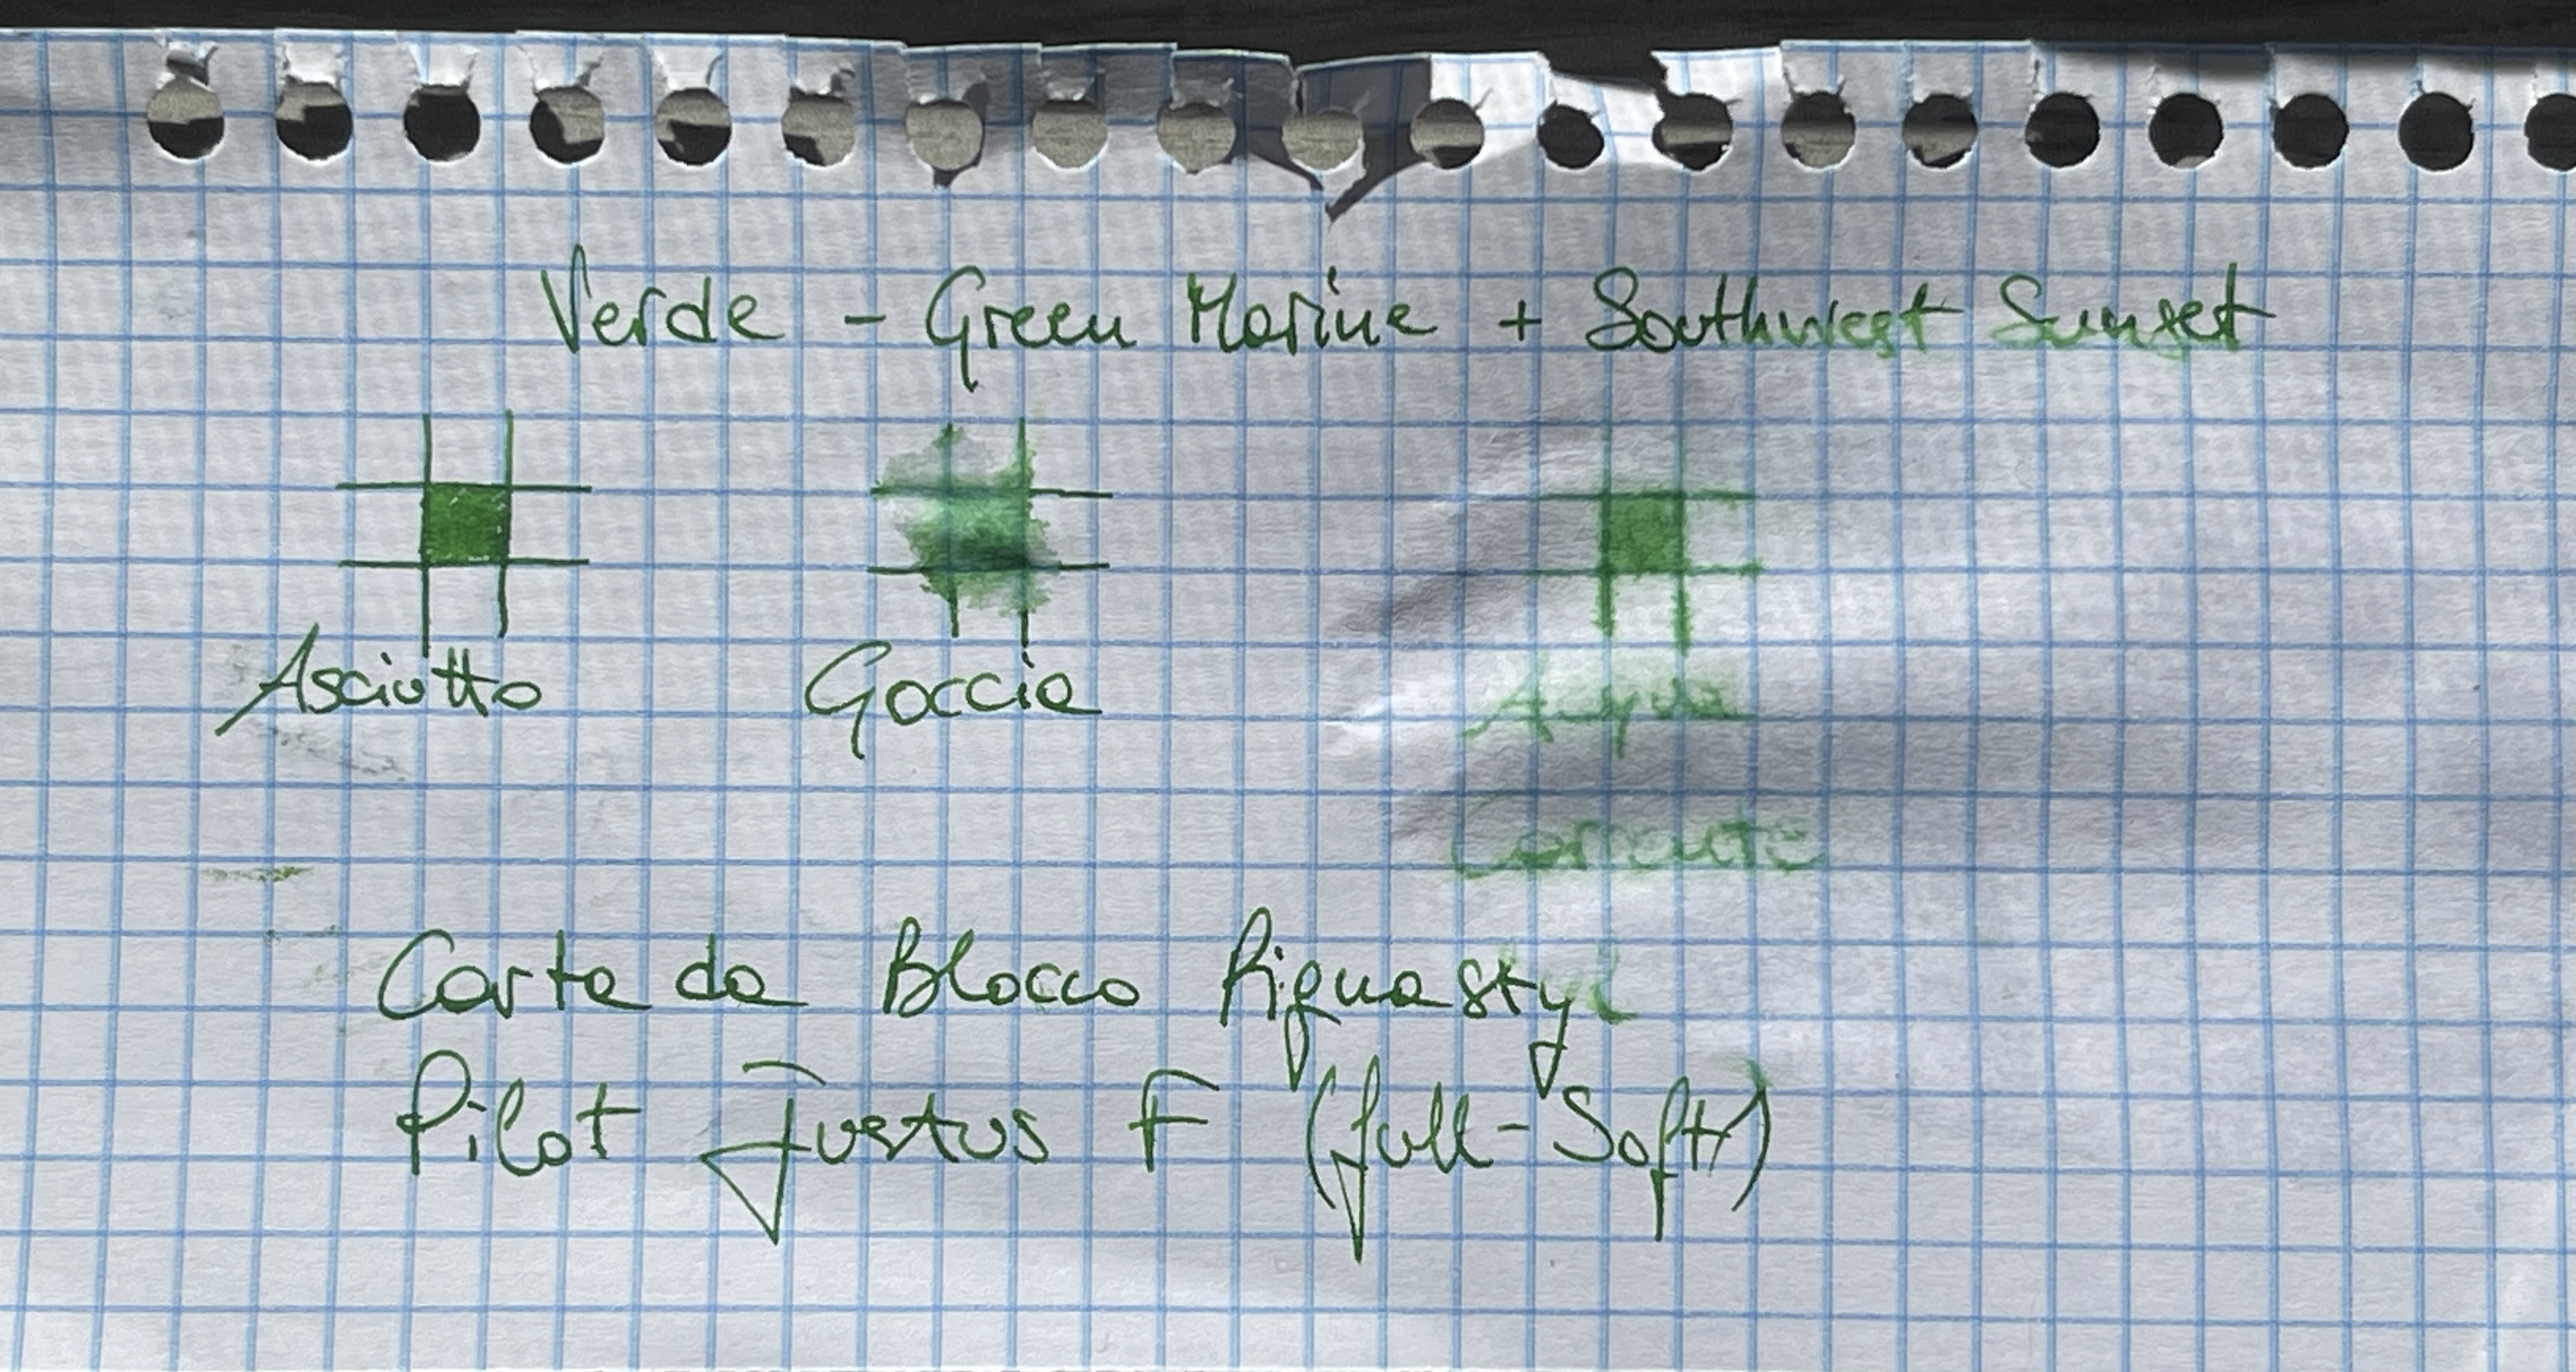 Verde - Green Marine + Southwest Sunset
Asciutto Goccia Acqua
Corrente
Carta da Blocco Pignastyl
Pilot Justus F (full-Soft)